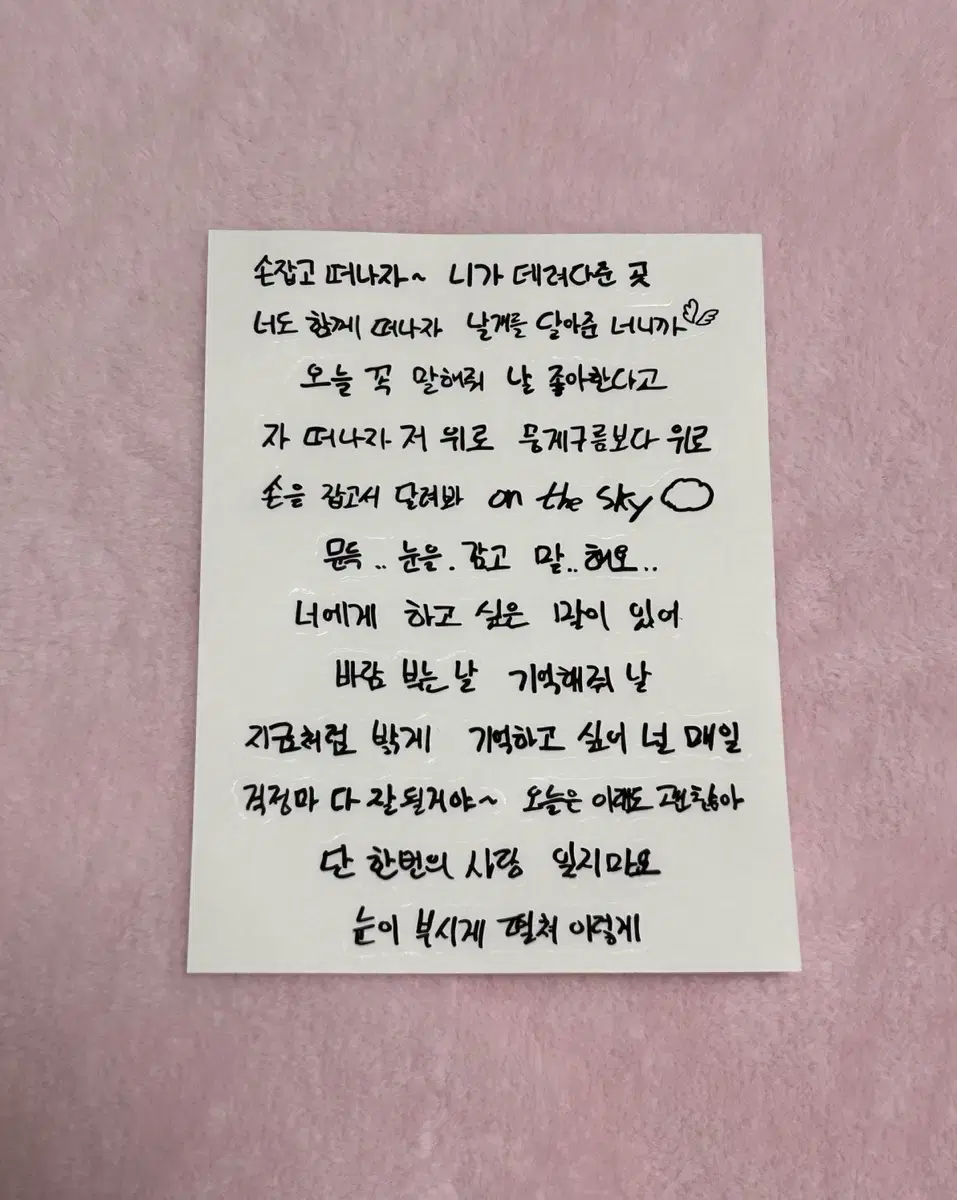 손잡고 떠나자~ 니가 데려다준 곳
너도 함께 떠나자 날개를 달아준 너니까
오늘 꼭 말해줘 날 좋아한다고
자 떠나자 저 위로 뭉게구름보다 위로
손을 잡고서 달려봐 on the sky
문득.. 눈을. 감고 말..해요..
너에게 하고 싶은 말이 있어
바람 부는 날 기억해줘 날
지금처럼 밝게 기억하고 싶어 널 매일
걱정마 다 잘 될거야~ 오늘은 이래도 괜찮아
단 한번의 사랑 잊지마요
눈이 부시게 펼쳐 이렇게